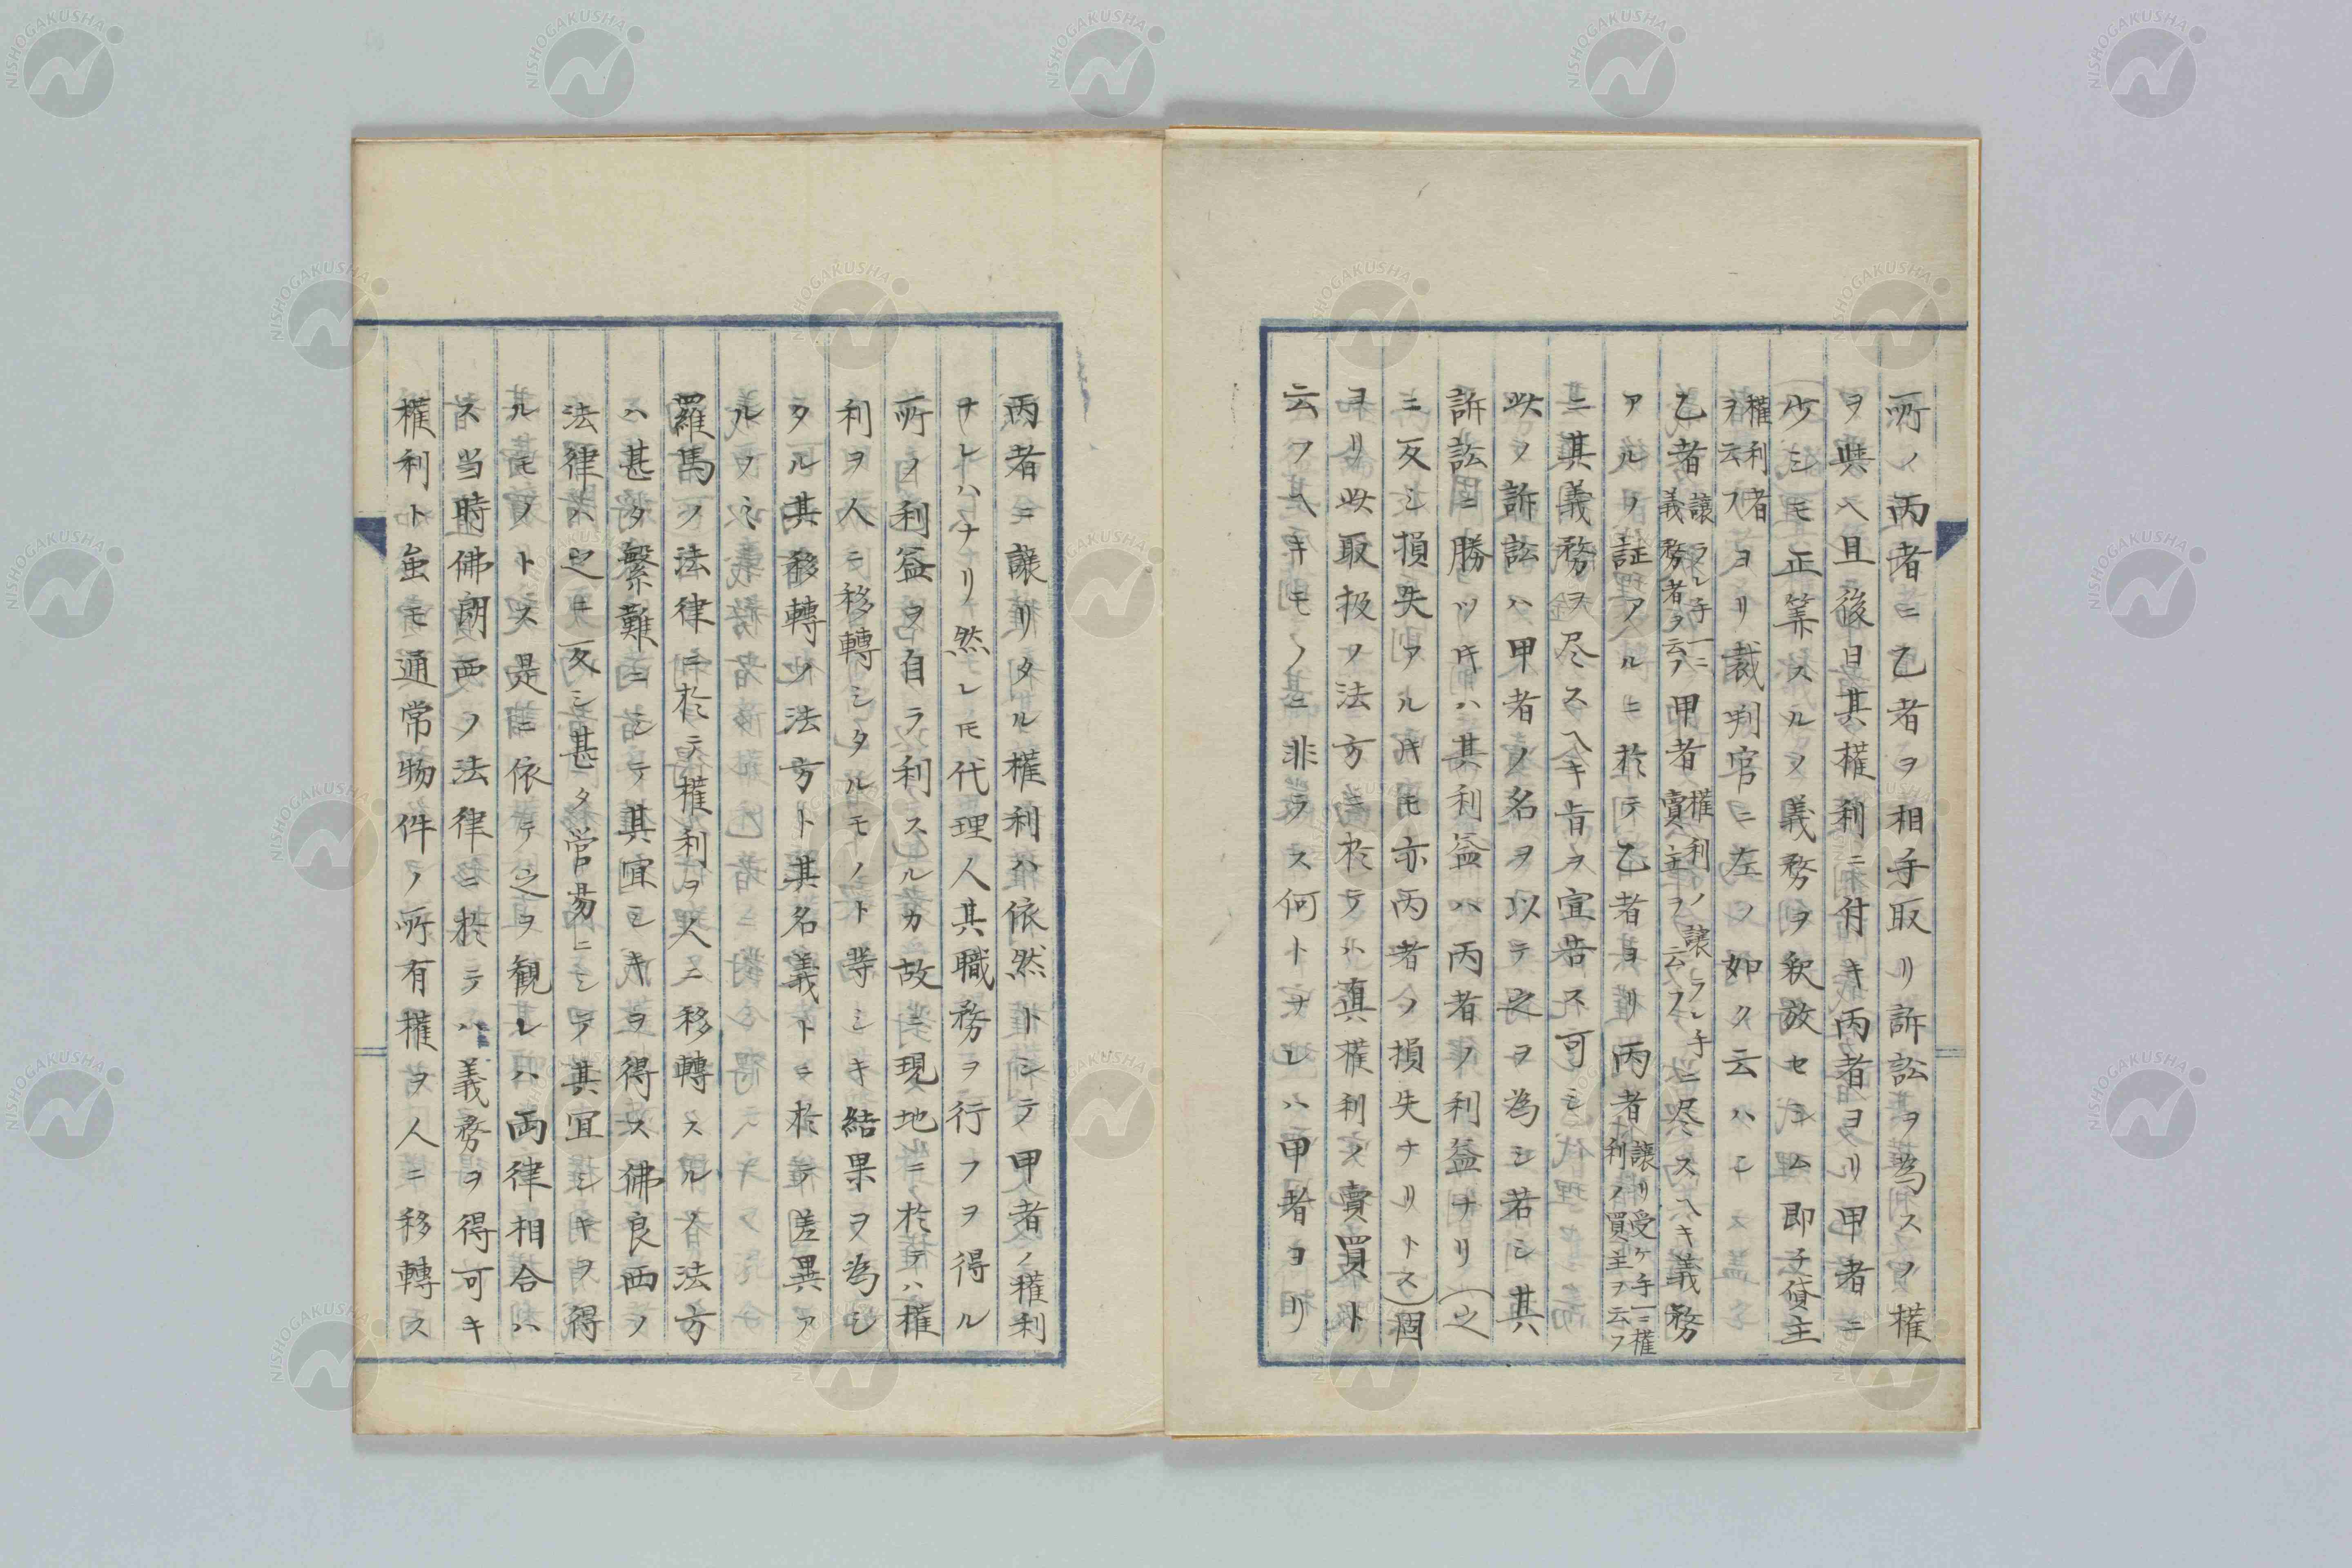 所ノ丙者ニ乙者ヲ相手取リ訴訟ヲ為スノ權
ヲ與ヘ且後日其權利ニ付キ丙者ヨリ甲者ニ
少シモ正算スルノ義務ヲ釈放セシム即チ貸主
權利者
ヲ云フ
ヨリ裁判官ニ左ノ如ク云ハシム
乙者
譲ラレ手一ニ
義務者ヲ云フ
甲者
權利ノ譲ラレ手
賣主ヲ云フ
ニ尽スヘキ義務
アルノ証アルニ於テ乙者ヨリ丙者
譲リ受ケ手一ニ權
利ノ買主ヲ云フ
ニ其義務ヲ尽スヘキ旨ヲ宣告ス可シ
此ノ訴訟ハ甲者ノ名ヲ以テ之ヲ為シ若シ其
訴訟ニ勝ツ片ハ其利益ハ丙者ノ利益ナリ(之
ニ反シ損失アル片モ亦丙者ノ損失ナリトス)固
ヨリ此取扱ノ法方ニ於テハ真權利ノ賣買ト
云フヘキモノニ非ラス何トナレハ甲者ヨリ
丙者ニ譲リタル權利ハ依然トシテ甲者ノ權利
ナレハナリ然レ𪜈代理人其職務ヲ行フヲ得ル
所ノ利益ヲ自ラ利スルカ故ニ現地ニ於テハ權
利ヲ人ニ移轉シタルモノト等シキ結果ヲ為シ
タル其移轉ノ法方ト其名義トニ於テ差異ア
ルノミ
羅馬ノ法律ニ於テ權利ヲ人ニ移轉スルノ法方
ハ甚タ繁難ニシテ其宜シキヲ得ス佛良西ノ
法律ハ之ニ反シ甚タ営易ニシテ其宜シキヲ得
ルモノトス是ニ依テ之ヲ観レハ両律相合ハ
ス当時佛朗西ノ法律ニ於テハ義務ヲ得可キ
權利ト虽モ通常物件ノ所有權ヲ人ニ移轉ス
NISHOGAKUSHA